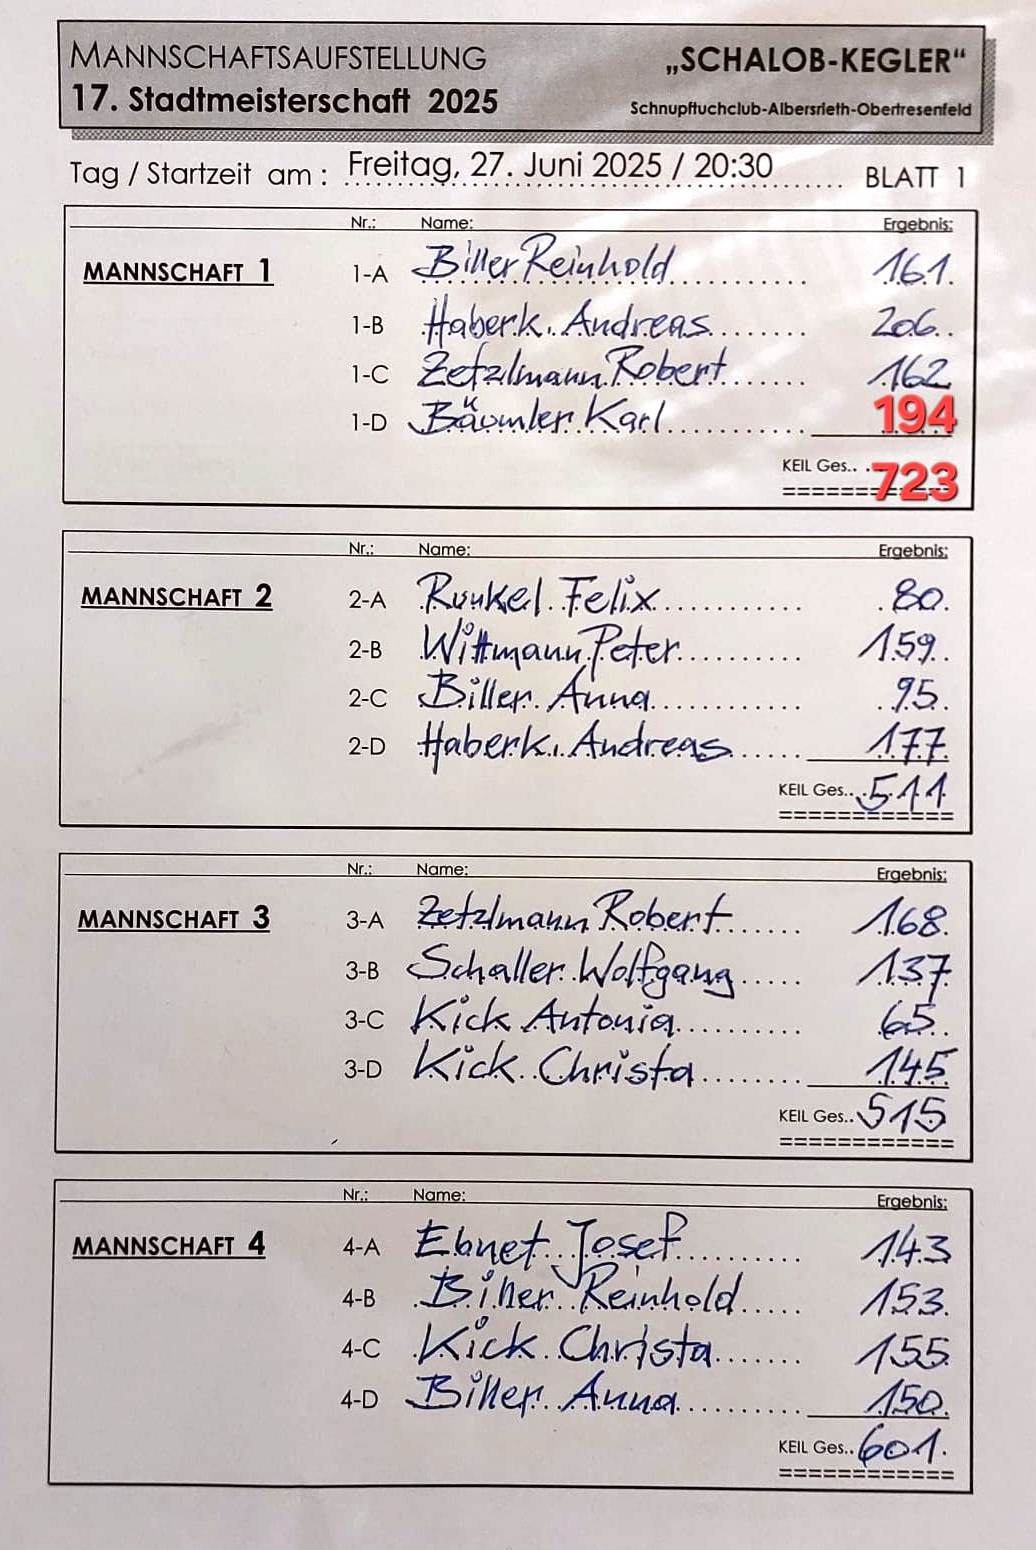 MANNSCHAFTSAUFSTELLUNG „SCHALOB-KEGLER“
17. Stadtmeisterschaft 2025 Schnupftuchclub-Albersrieth-Obertresenfeld
Tag / Startzeit am : Freitag, 27. Juni 2025 / 20:30 BLATT 1
Nr.: Name: Ergebnis:
MANNSCHAFT 1 1-A Biller Reinhold 161
1-B Haberk. Andreas 206
1-C Zetzlmann Robert 162
1-D Bäumler Karl 194
KEIL Ges.. 723
Nr.: Name: Ergebnis:
MANNSCHAFT 2 2-A Runkel Felix 80
2-B Wittmann Peter 159
2-C Biller Anna 95
2-D Haberk. Andreas 177
KEIL Ges.. 511
Nr.: Name: Ergebnis:
MANNSCHAFT 3 3-A Zetzlmann Robert 168
3-B Schaller Wolfgang 137
3-C Kick Antonia 65
3-D Kick Christa 145
KEIL Ges.. 515
Nr.: Name: Ergebnis:
MANNSCHAFT 4 4-A Ebnet Josef 143
4-B Biller Reinhold 153
4-C Kick Christa 155
4-D Biller Anna 150
KEIL Ges.. 601